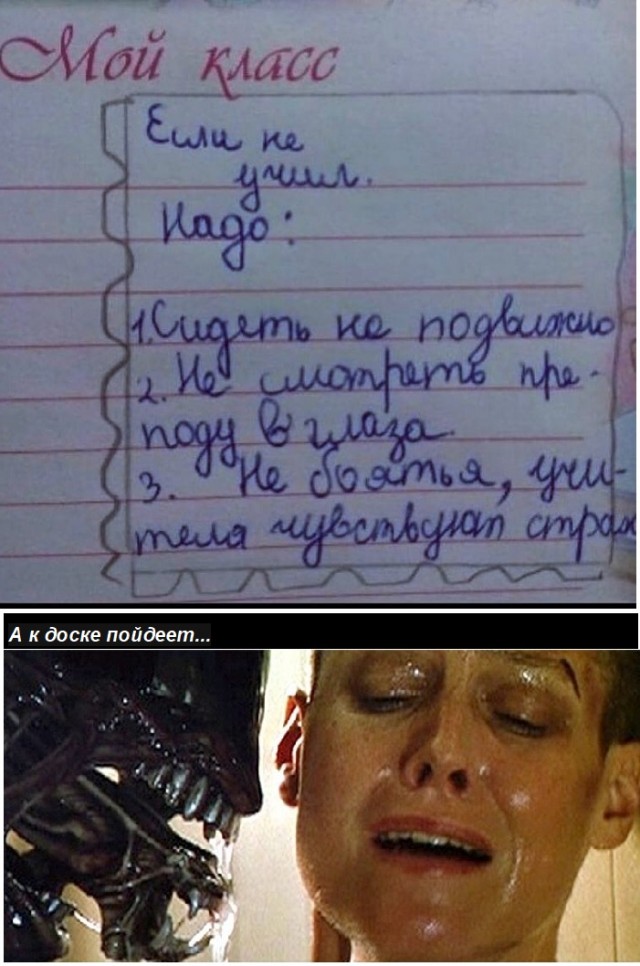 Мой класс
Если не
учил.
Надо:
1. Сидеть не подвижно
2. Не смотреть пре-
поду в глаза
3. Не боятья, учи-
теля чувствуют страх
А к доске пойдеет...